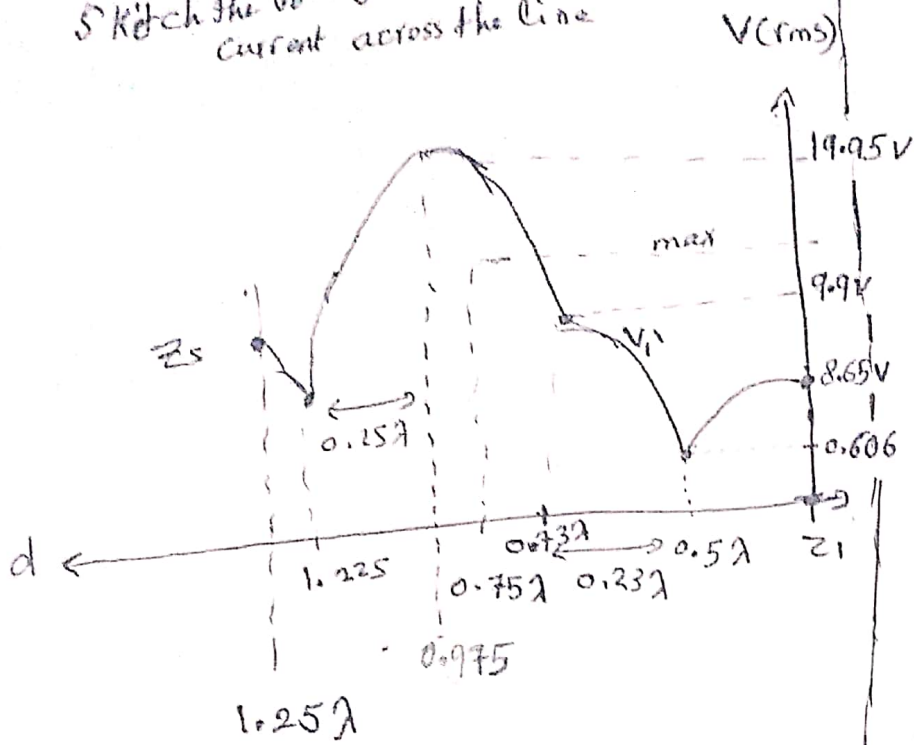 Sketch the
Current across the line
V(rms)
19.95V
max
9.9V
Zs
V1
8.65V
0.25λ
0.606
d
1.225
0.73λ
0.5λ
Z1
0.75λ
0.23λ
0.975
1.25λ